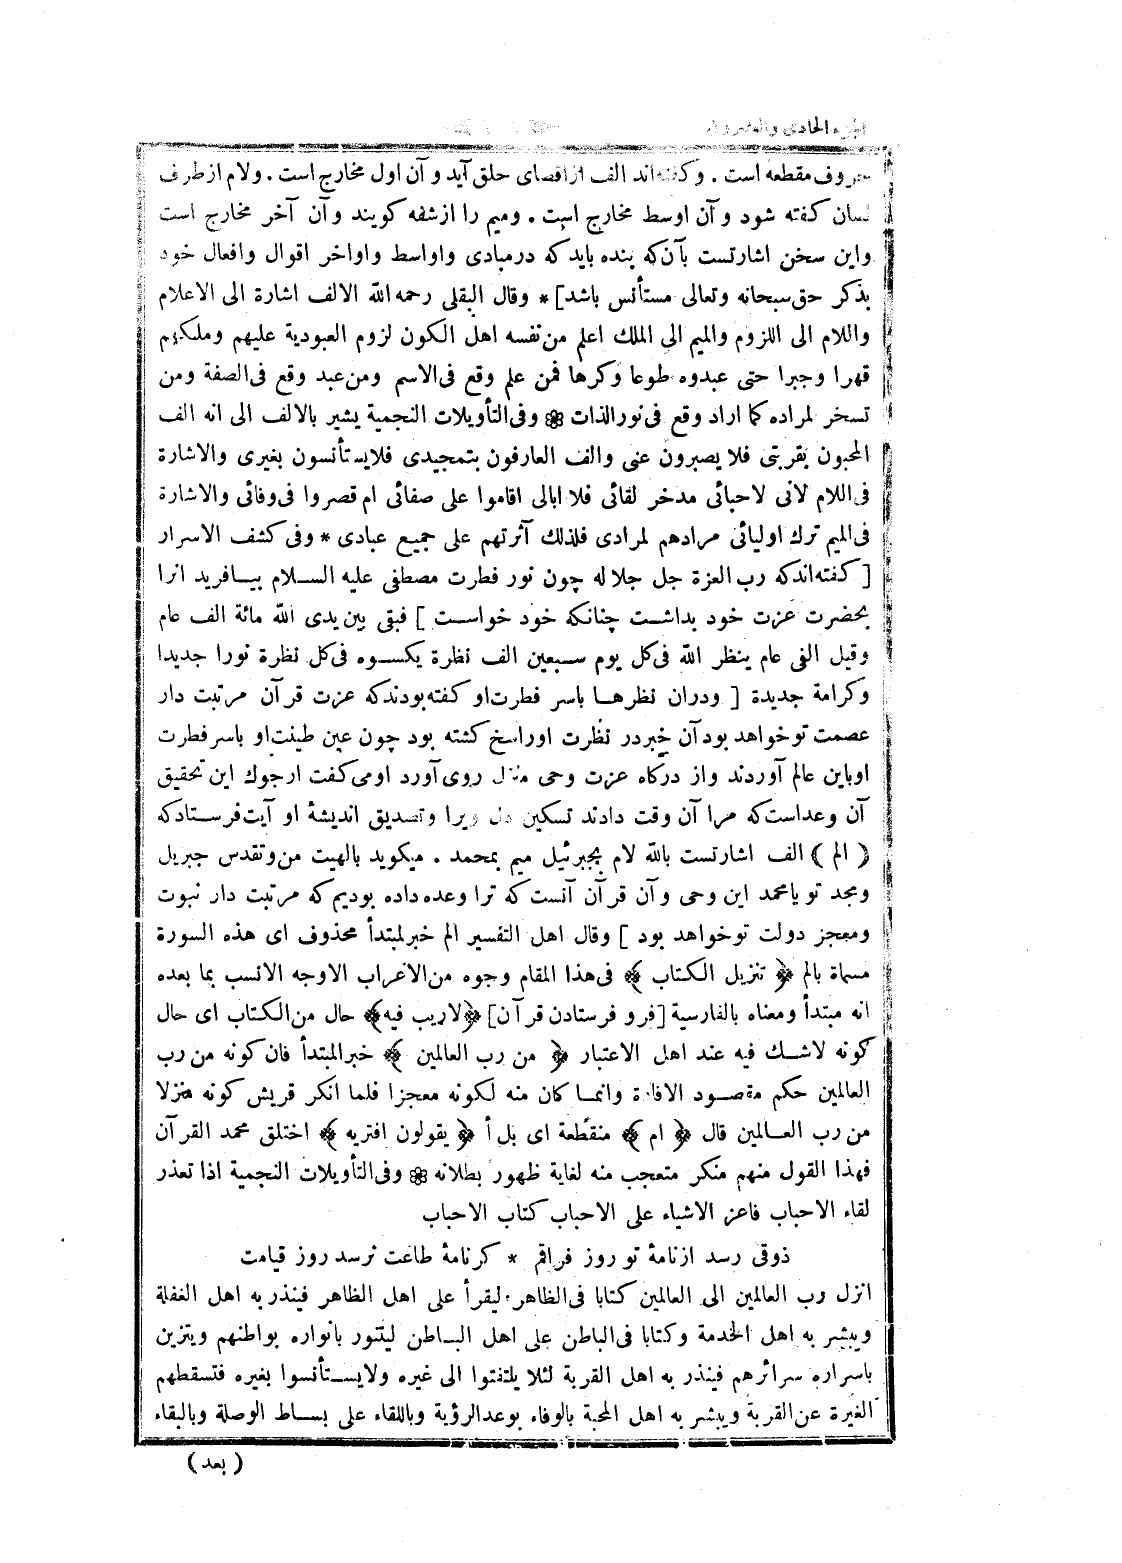 الجزء الحادى والعشرون
حروف مقطعه است . وكفته‌اند الف ازاقصاى حلق آيد و آن اول مخارج است . ولام ازطرف
لسان كفته شود و آن اوسط مخارج است . وميم را ازشفه كويند و آن آخر مخارج است
واين سخن اشارتست بآن‌كه بنده بايدكه درمبادى واواسط واواخر اقوال وافعال خود
بذكر حق‌سبحانه وتعالى مستأنس باشد] * وقال البقلى رحمه الله الالف اشارة الى الاعلام
واللام الى اللزوم والميم الى الملك اعلم من‌نفسه اهل الكون لزوم العبودية عليهم وملكهم
قهرا وجبرا حتى عبدوه طوعا وكرها فمن علم وقع فى‌الاسم ومن‌عبد وقع فى‌الصفة ومن
تسخر لمراده كما اراد وقع فى‌نورالذات ❁ وفى‌التأويلات النجمية يشير بالالف الى انه الف
المحبون بقربتى فلا يصبرون عنى والف العارفون بتمجيدى فلايستأنسون بغيرى والاشارة
فى‌اللام لانى لاحبائى مدخر لقائى فلا ابالى اقاموا على صفائى ام قصروا فى‌وفائى والاشارة
فى‌الميم ترك اوليائى مرادهم لمرادى فلذلك آثرتهم على جميع عبادى * وفى كشف الاسرار
[ كفته‌اندكه رب العزة جل جلاله چون نور فطرت مصطفى عليه السلام بيافريد انرا
بحضرت عزت خود بداشت چنانكه خود خواست ] فبقى بين‌يدى الله مائة الف عام
وقيل الفى عام ينظر الله فى‌كل يوم سبعين الف نظرة يكسوه فى‌كل نظرة نورا جديدا
وكرامة جديدة [ ودران نظرها باسر فطرت‌او كفته‌بودندكه عزت قرآن مرتبت دار
عصمت توخواهد بودآن خبردر نظرت اوراسخ كشته بود چون عين طينت‌او باسرفطرت
اوباين عالم آوردند واز دركاه عزت وحى منزل روى‌آورد اومى‌كفت ارجوك اين تحقيق
آن وعداست‌كه مرا آن وقت دادند تسكين دل ويرا وتصديق انديشهٔ او آيت‌فرستادكه
( الم ) الف اشارتست بالله لام بجبرئيل ميم بمحمد . ميكويد بالهيت من‌وتقدس جبريل
ومجد تو يامحمد اين وحى وآن قرآن آنست‌كه ترا وعده‌داده بوديم‌كه مرتبت دار نبوت
ومعجز دولت توخواهد بود ] وقال اهل التفسير الم خبرلمبتدأ محذوف اى هذه السورة
مسماة بالم ﴿ تنزيل الكتاب ﴾ فى‌هذا المقام وجوه من‌الاعراب الاوجه الانسب بما بعده
انه مبتدأ ومعناه بالفارسية [فرو فرستادن قرآن] ﴿لاريب فيه﴾ حال من‌الكتاب اى حال
كونه لاشك فيه عند اهل الاعتبار ﴿ من رب العالمين ﴾ خبرالمبتدأ فان‌كونه من رب
العالمين حكم مقصود الافادة وانما كان منه لكونه معجزا فلما انكر قريش كونه منزلا
من رب العالمين قال ﴿ ام ﴾ منقطعة اى بل أ ﴿ يقولون افتريه ﴾ اختلق محمد القرآن
فهذا القول منهم منكر متعجب منه لغاية ظهور بطلانه ❁ وفى‌التأويلات النجمية اذا تعذر
لقاء الاحباب فاعز الاشياء على الاحباب كتاب الاحباب
ذوقى رسد ازنامهٔ تو روز فراقم * كرنامهٔ طاعت نرسد روز قيامت
انزل رب العالمين الى العالمين كتابا فى‌الظاهر ليقرأ على اهل الظاهر فينذر به اهل الغفلة
ويبشر به اهل الخدمة وكتابا فى‌الباطن على اهل الباطن ليتنور بانواره بواطنهم ويتزين
باسراره سرائرهم فينذر به اهل القربة لئلا يلتفتوا الى غيره ولايستأنسوا بغيره فتسقطهم
الغيرة عن‌القربة ويبشر به اهل المحبة بالوفاء بوعدالرؤية وباللقاء على بساط الوصلة وبالبقاء
( بعد )